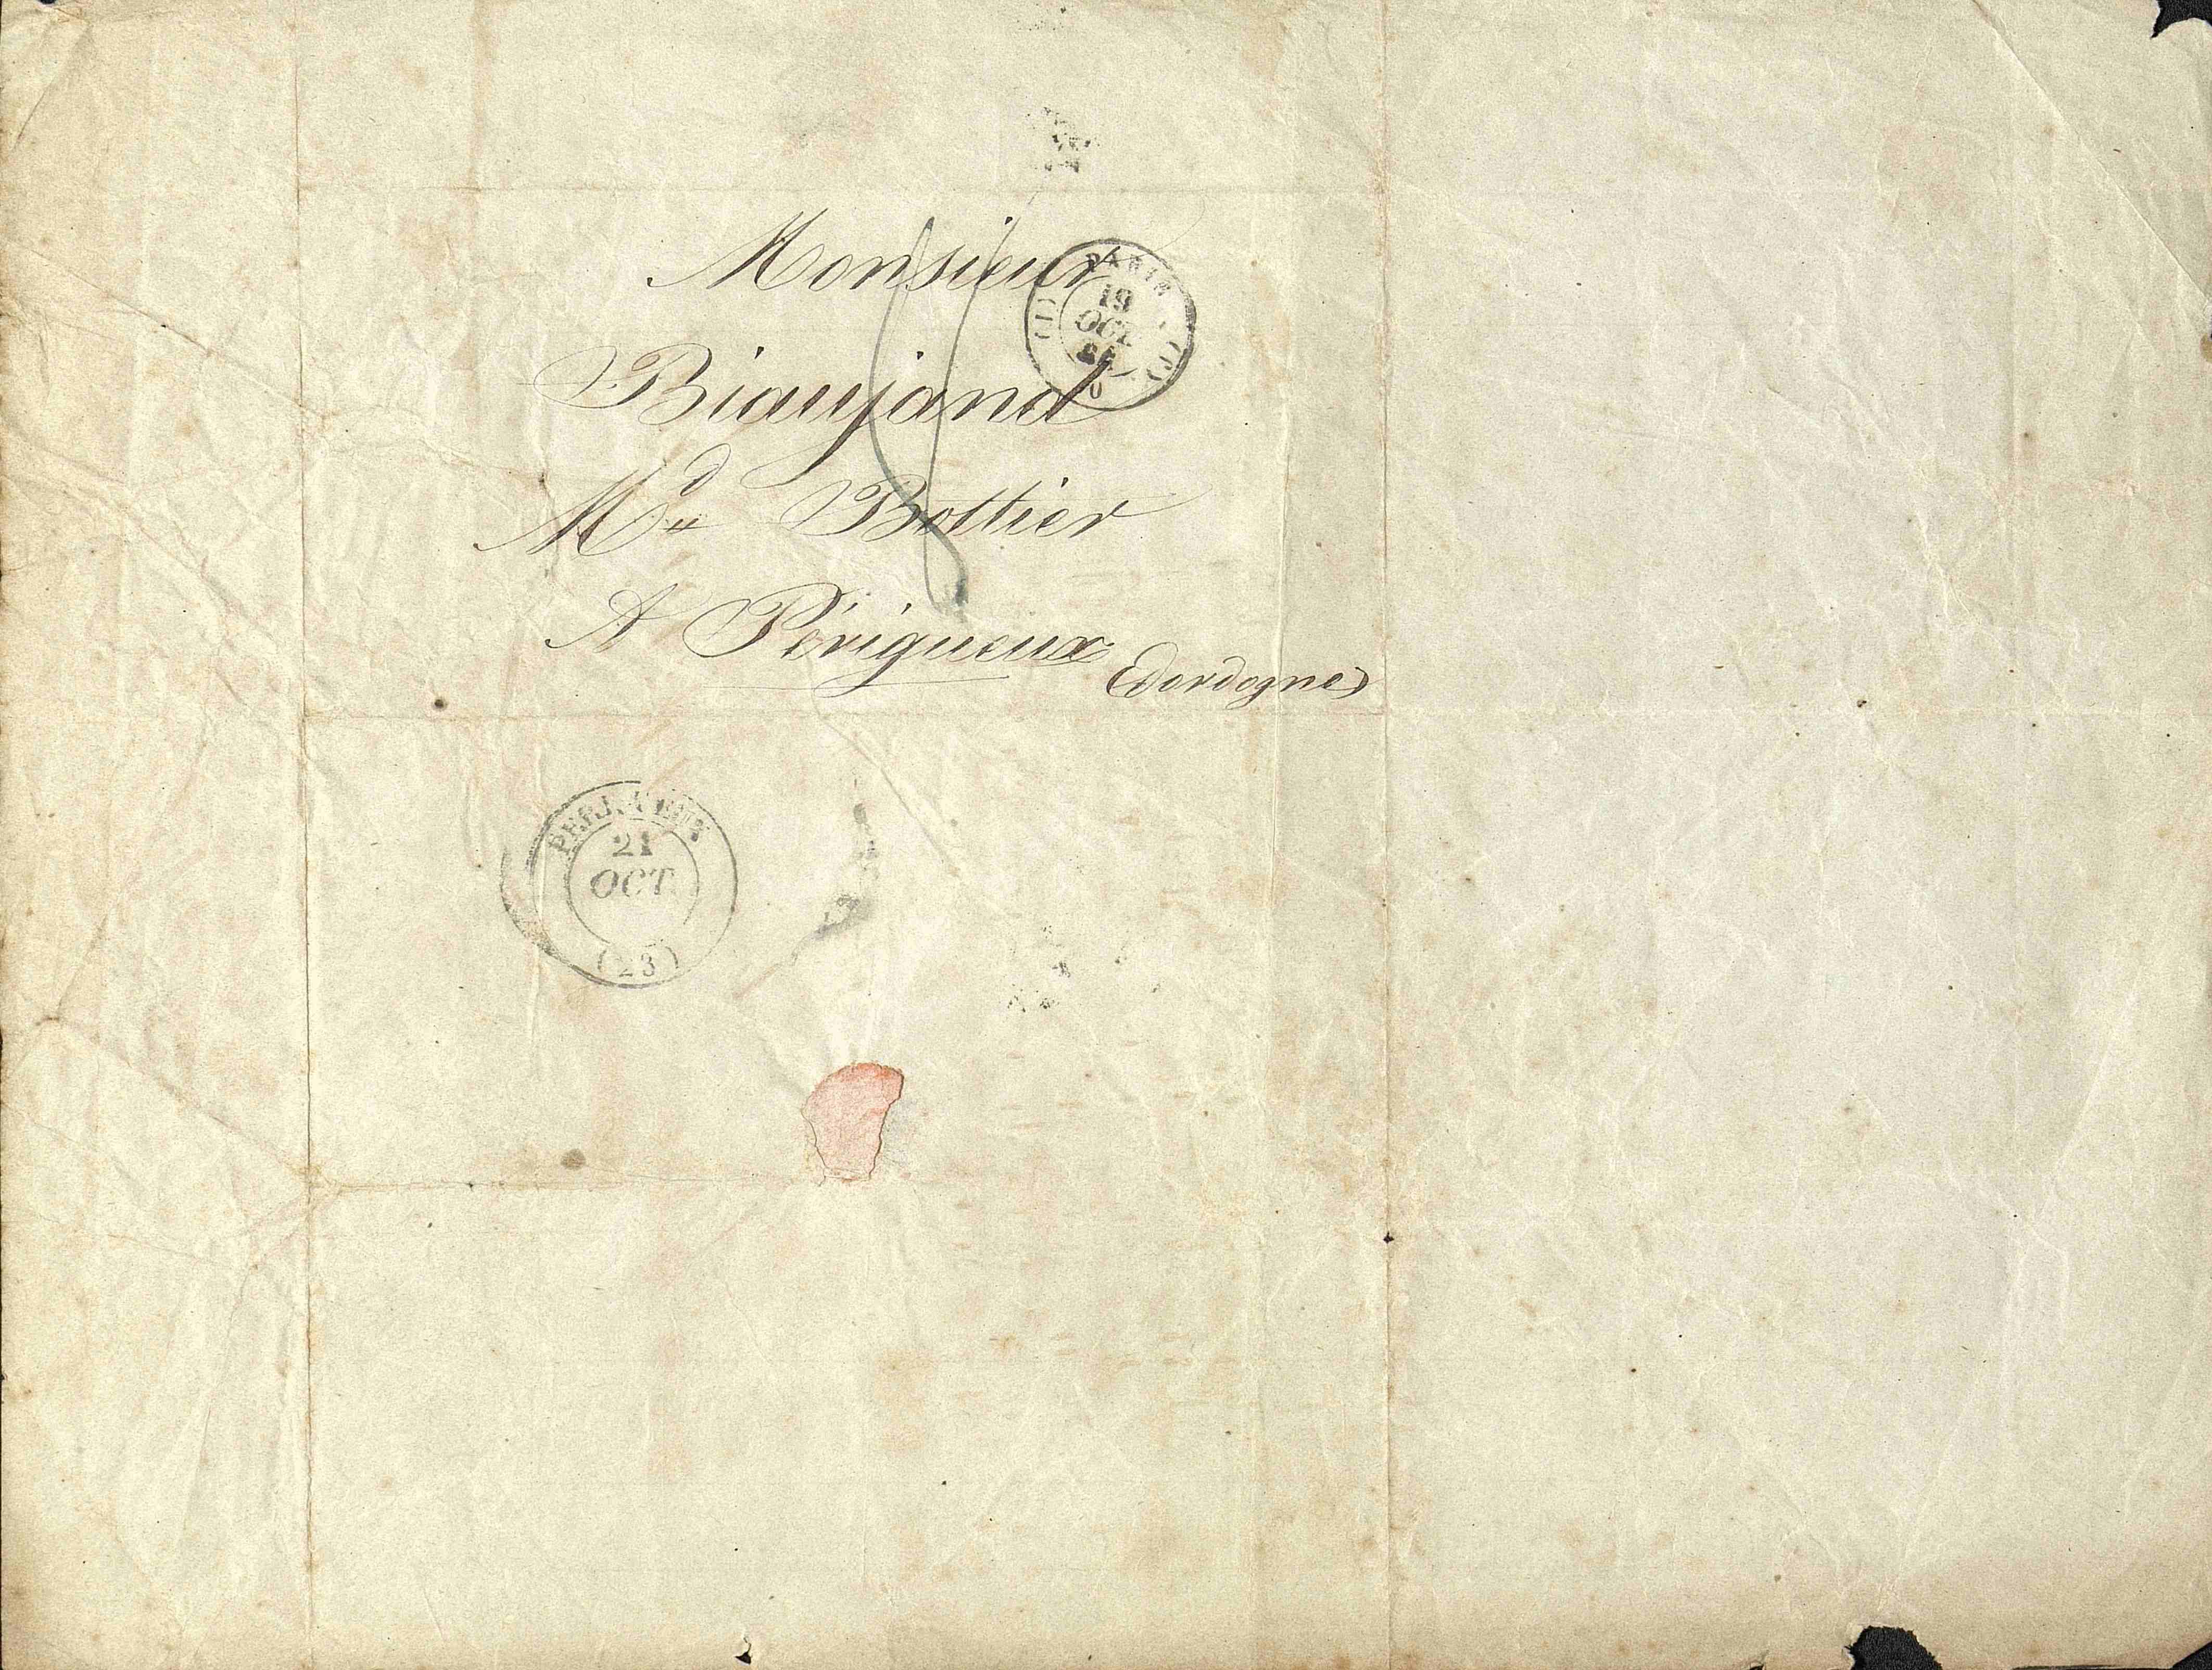 Monsieur
PARIS
(1)
19
OCT.
(1)
Biaujand
Md Bottier
A Périgueux (dordogne)
PERIGUEUX
21
OCT.
(23)